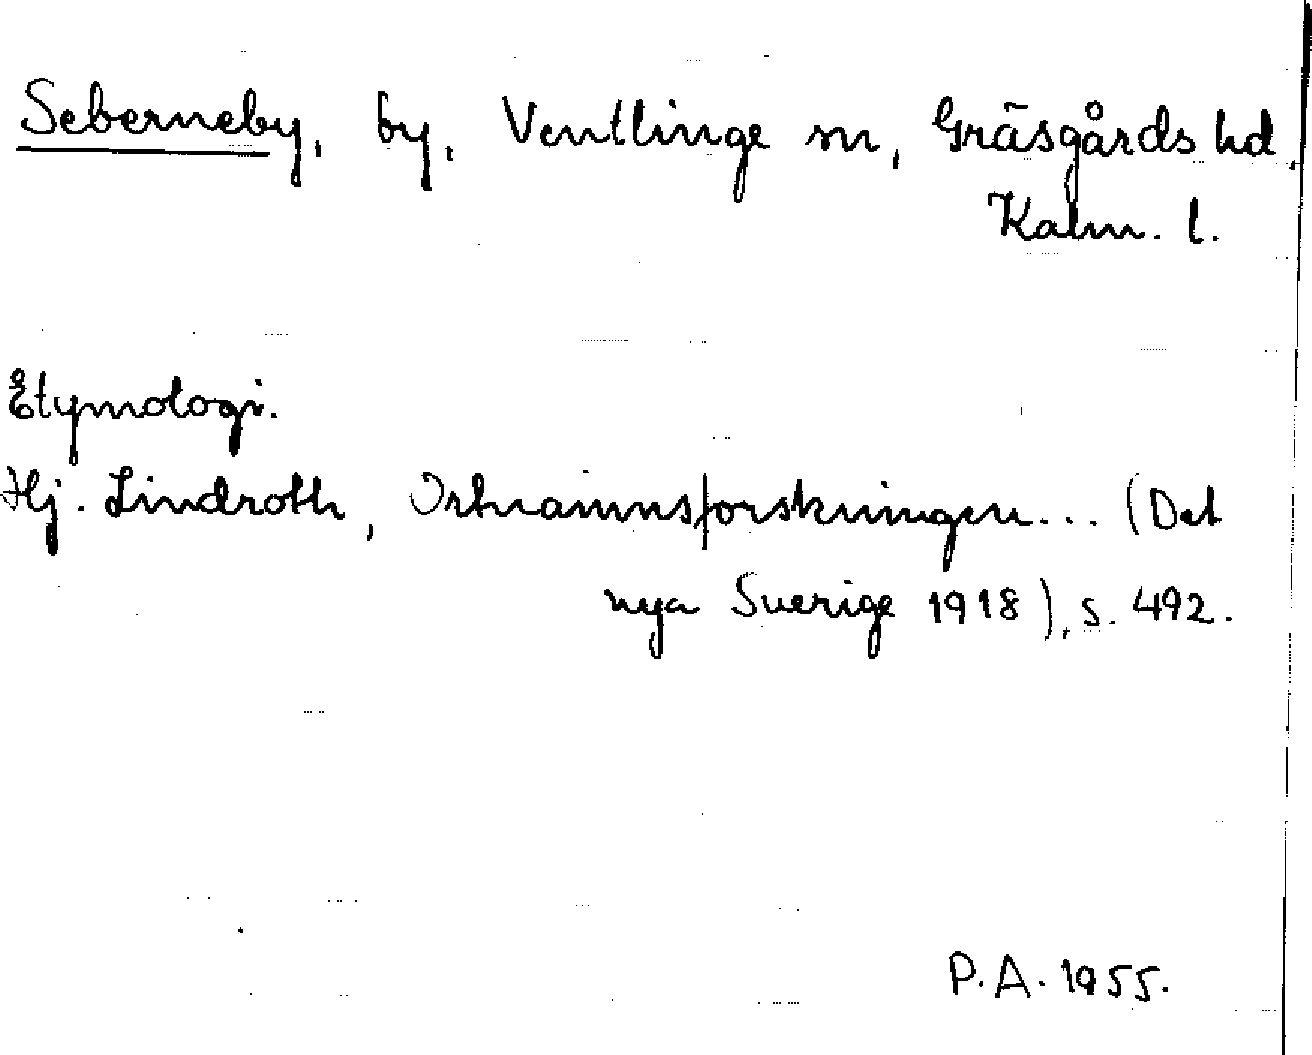 Seberneby, by, Ventlinge sn, Gräsgårds hd,
Kalm. l.
Etymologi.
Hj. Lindroth, Ortnamnsforskningen... (Det
nya Sverige 1918), s. 492.
P.A. 1955.